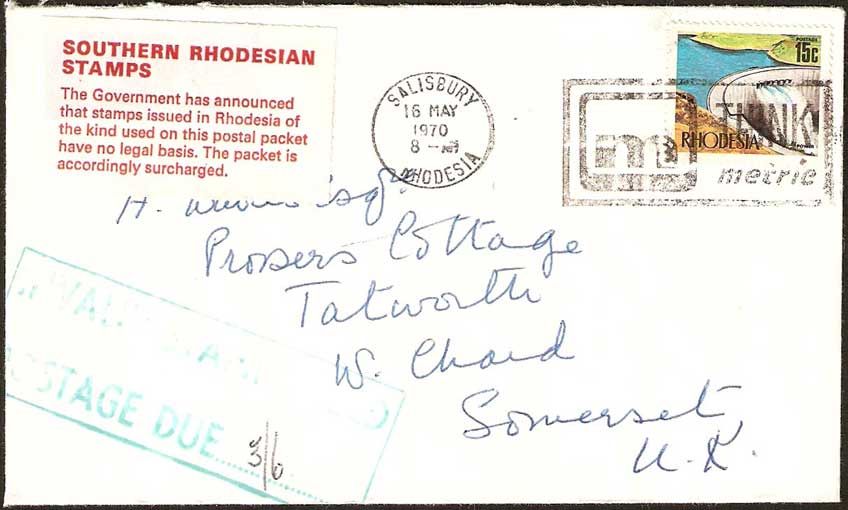 SOUTHERN RHODESIAN
STAMPS
The Government has announced
that stamps issued in Rhodesia of
the kind used on this postal packet
have no legal basis. The packet is
accordingly surcharged.
SALISBURY
16 MAY
1970
8 - AM
RHODESIA
POSTAGE
15c
RHODESIA
POWER
m
THINK
metric
H. Esq
Prossers Cottage
Tatworth
W. Chard
Somerset
U.K.
POSTAGE DUE 3/6